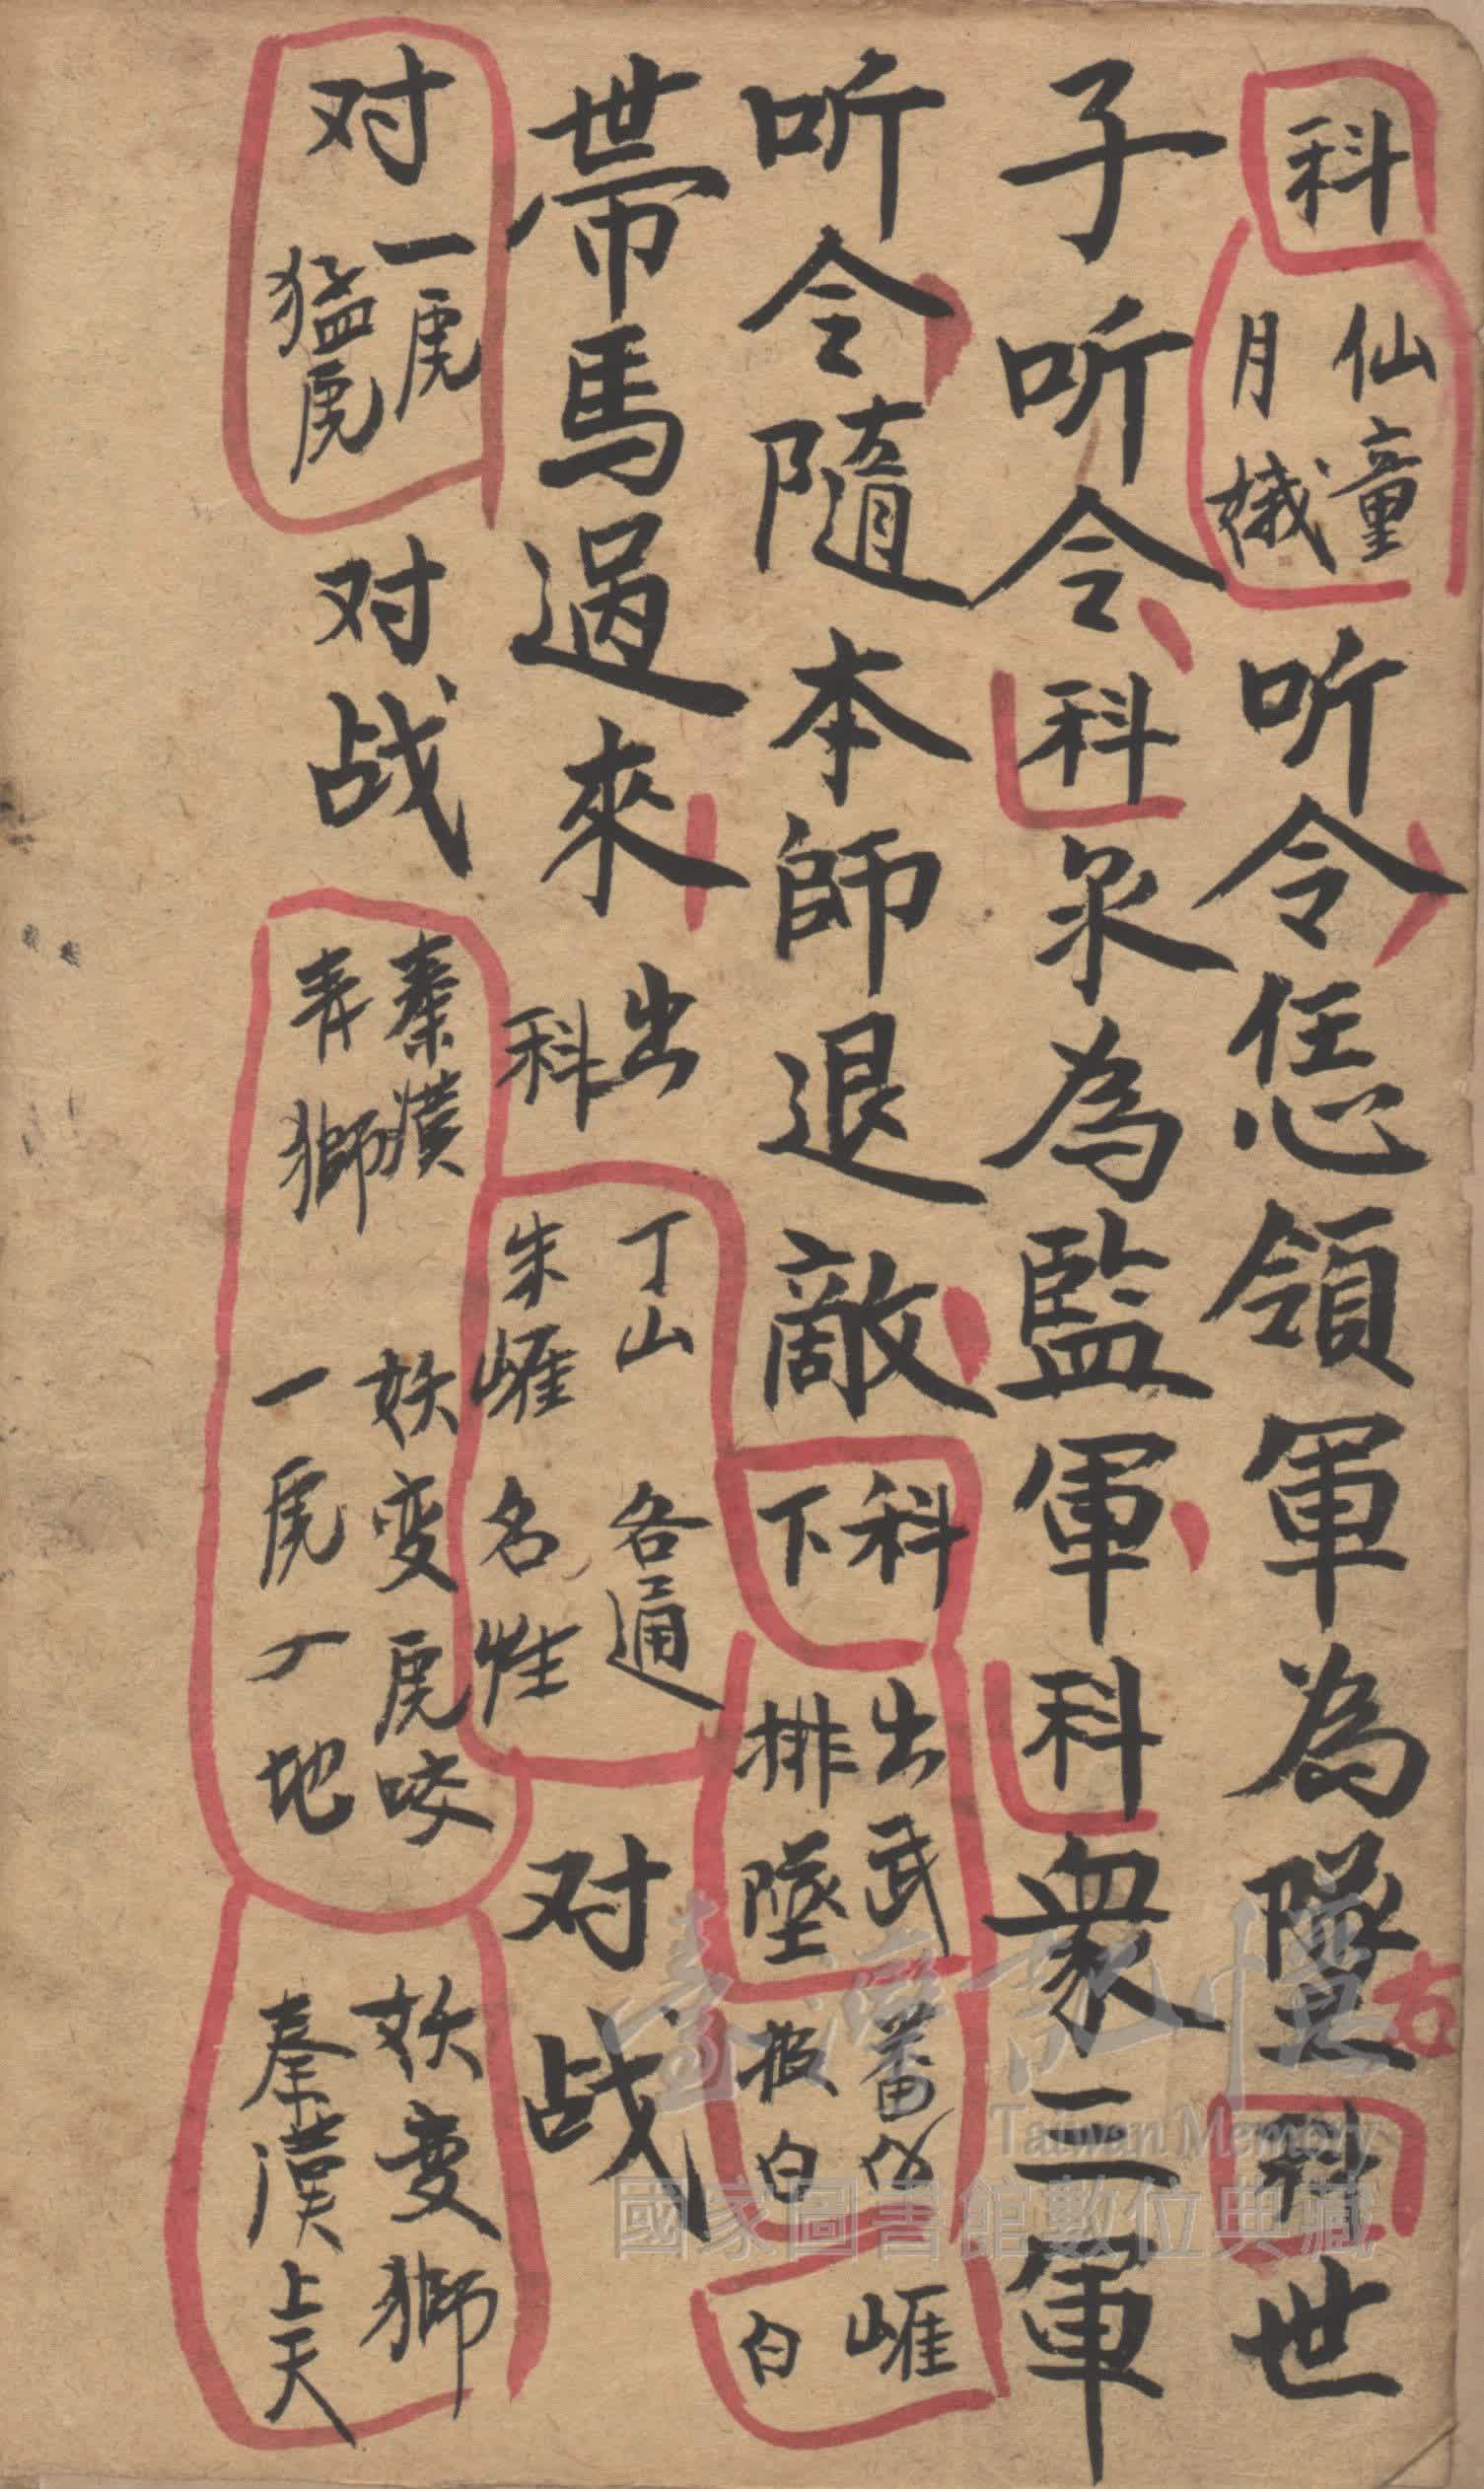 科 仙童 月娥 听令恁領軍為墜 右 科 世
子听令 科 為監軍 科 衆三軍
听令隨本師退敵 科下 出武排墜 蕃 報白 崕白
帶馬過來 出科 丁山 朱崕 各通名性 对战
对 一虎 猛虎 对战 秦漢 青獅 妖变虎咬 一虎丁地 妖变獅 秦漢上天
臺灣記憶
Taiwan Memory
國家圖書館數位典藏